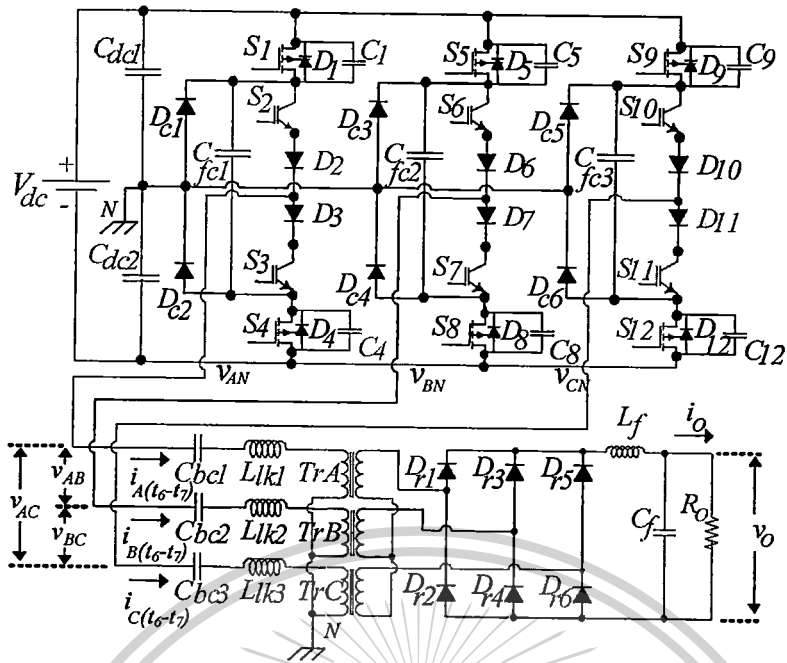 C_dc1
S1
D1
C1
S5
D5
C5
S9
D9
C9
D_c1
S2
D_c3
S6
D_c5
S10
C_fc1
D2
C_fc2
D6
C_fc3
D10
+
V_dc
-
N
D3
D7
D11
C_dc2
D_c2
S3
D_c4
S7
D_c6
S11
S4
D4
C4
S8
D8
C8
S12
D12
C12
v_AN
v_BN
v_CN
L_f
i_O
v_AC
v_AB
v_BC
i_A(t6-t7)
C_bc1
L_lk1
TrA
D_r1
D_r3
D_r5
i_B(t6-t7)
C_bc2
L_lk2
TrB
C_f
R_O
v_O
i_C(t6-t7)
C_bc3
L_lk3
TrC
D_r2
D_r4
D_r6
N